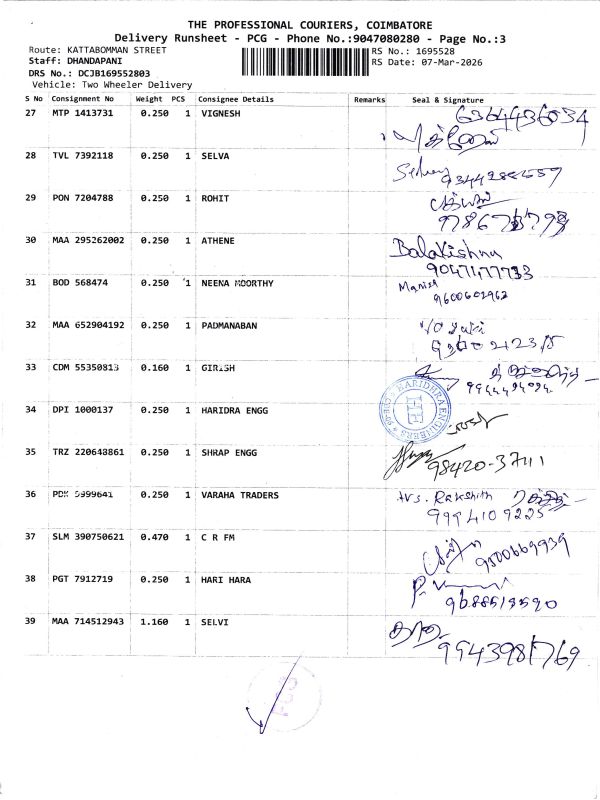 THE PROFESSIONAL COURIERS, COIMBATORE
Delivery Runsheet - PCG - Phone No.:9047080280 - Page No.:3
Route: KATTABOMMAN STREET RS No.: 1695528
Staff: DHANDAPANI RS Date: 07-Mar-2026
DRS No.: DCJB169552803
Vehicle: Two Wheeler Delivery
S No Consignment No Weight PCS Consignee Details Remarks Seal & Signature
27 MTP 1413731 0.250 1 VIGNESH 6364436034
28 TVL 7392118 0.250 1 SELVA
29 PON 7204788 0.250 1 ROHIT
30 MAA 295262002 0.250 1 ATHENE Balakishna
9047477733
31 BOD 568474 0.250 1 NEENA MOORTHY Manish
9600602962
32 MAA 652904192 0.250 1 PADMANABAN
33 CDM 55350813 0.160 1 GIRISH
34 DPI 1000137 0.250 1 HARIDRA ENGG HARIDHRA ENGINEERS HE
35 TRZ 220648861 0.250 1 SHRAP ENGG 98420-37411
36 PDK 5999641 0.250 1 VARAHA TRADERS Rakshith
9994109225
37 SLM 390750621 0.470 1 C R FM 9500669939
38 PGT 7912719 0.250 1 HARI HARA
39 MAA 714512943 1.160 1 SELVI
9943981769
PCG